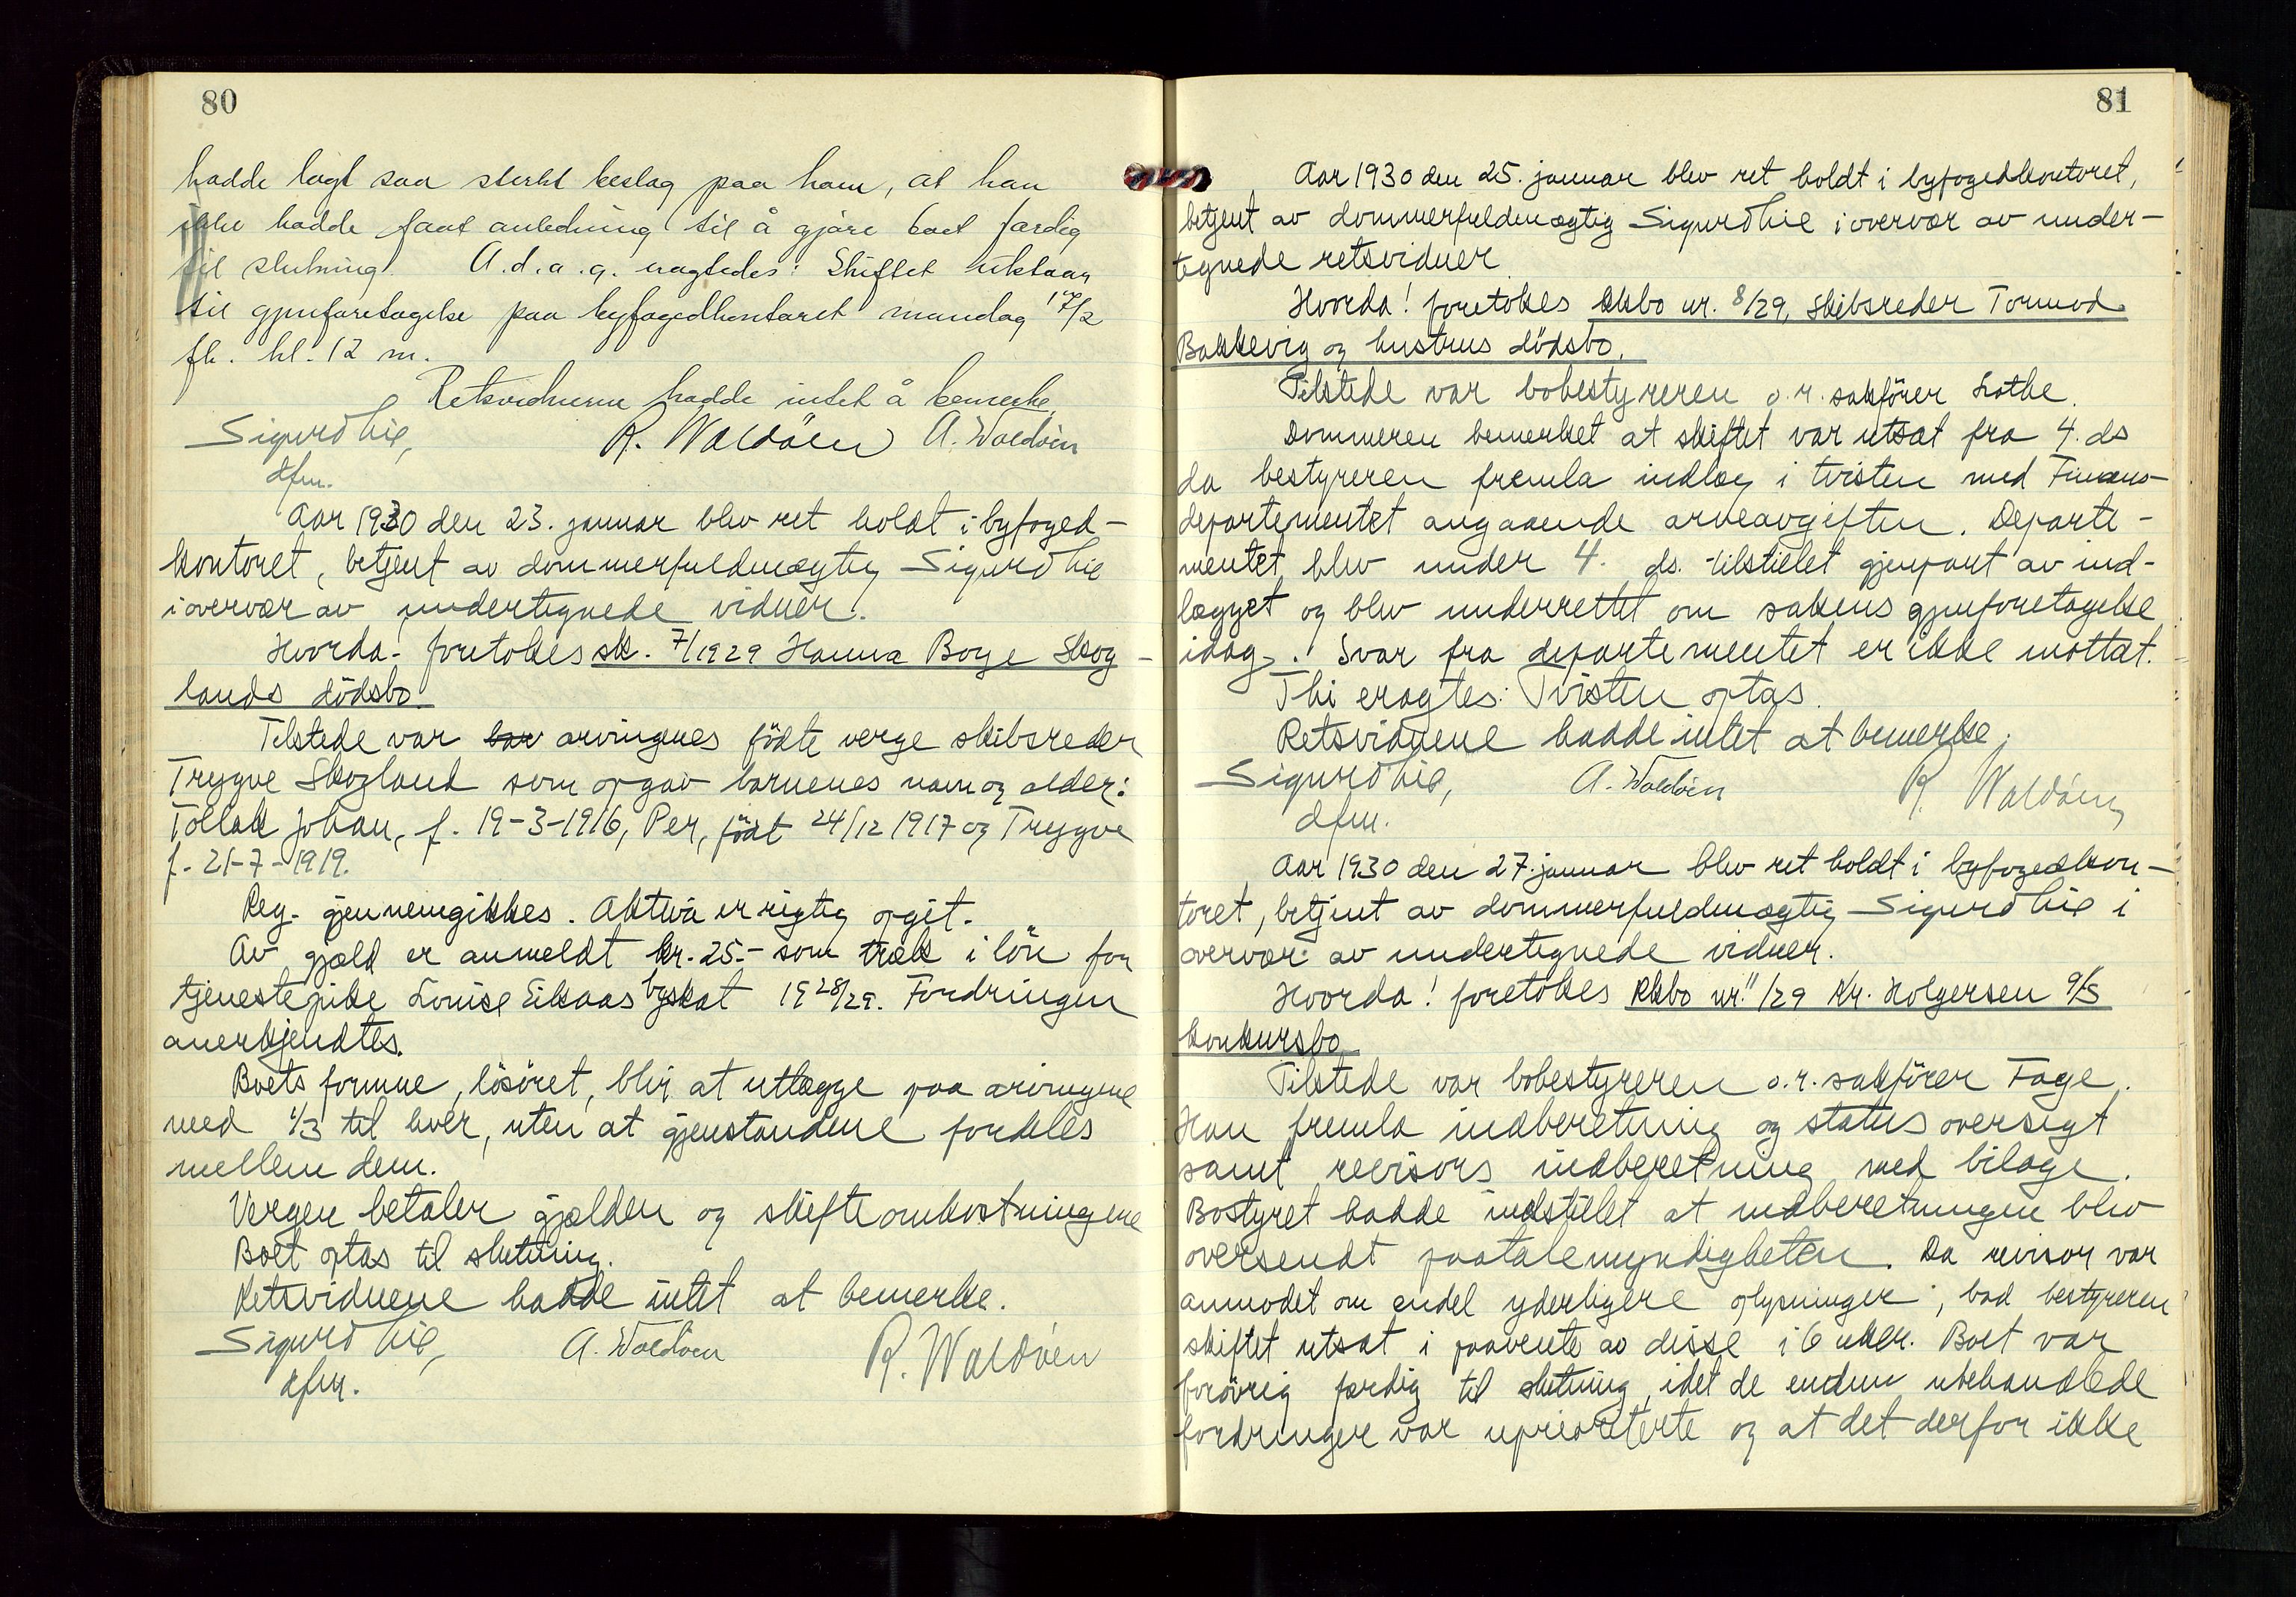 80
hadde lagt saa sterkt beslag paa ham, at han
ikke hadde faat anledning til å gjøre boet færdig
til slutning. A.d.a.q. eragtedes: Skiftet utstaar
til gjenforetagelse paa byfogedkontoret mandag 17/2
fk. kl. 12 m.
Retsvidnerne hadde intet å bemerke.
Sigurd Lie, R. Waldöen A. Waldöen
dfm.
Aar 1930 den 23. januar blev ret holdt i byfoged-
kontoret, betjent av dommerfuldmægtig Sigurd Lie
i overvær av undertegnede vidner.
Hvorda. foretokes sk. 7/1929 Hanna Boye Skog-
lands dödsbo.
Tilstede var bar arvingnes födte verge skibsreder
Trygve Skogland som opgav barnenes navn og alder:
Tollak Johan, f. 19-3-1916, Per, födt 24/12 1917 og Trygve
f. 21-7-1919.
Reg. gjennemgikkes. Aktiva er rigtig opgit.
Av gjæld er anmeldt kr. 25.- som træk i lön for
tjenestepike Louise Eikaas byskat 1928/29. Fordringen
anerkjendtes.
Boets formue, lösöret, blir at utlægge paa arvingene
med 1/3 til hver, uten at gjenstandene fordeles
mellem dem.
Vergen betaler gjælden og skifteomkostningene
Boet optas til slutning.
Retsvidnene hadde intet at bemerke.
Sigurd Lie, A. Waldöen R. Waldöen
dfm.
81
Aar 1930 den 25. januar blev ret holdt i byfogedkontoret,
betjent av dommerfuldmægtig Sigurd Lie i overvær av under-
tegnede retsvidner
Hvorda! foretokes skbo nr. 8/29, Skibsreder Tormod
Bakkevig og hustrus dödsbo.
Tilstede var bobestyreren o.r. sakförer Lothe.
Dommeren bemerket at skiftet var utsat fra 4. ds
da bestyreren fremla indlæg i tvisten med Finans-
departementet angaaende arveavgiften. Departe-
mentet blev under 4. ds. tilstillet gjenpart av ind-
lægget og blev underrettet om sakens gjenforetagelse
idag. Svar fra departementet er ikke mottat.
Thi eragtes: Tvisten optas.
Retsvidnene hadde intet at bemerke.
Sigurd Lie, A. Waldöen R. Waldöen
dfm.
Aar 1930 den 27. januar blev ret holdt i byfogedkon-
toret, betjent av dommerfuldmægtig Sigurd Lie i
overvær av undertegnede vidner.
Hvorda! foretokes kkbo nr. 11/29 Kr. Holgersen A/S
konkursbo
Tilstede var bobestyreren o.r. sakförer Fage.
Han fremla indberetning og status oversigt
samt revisors indberetning med bilage.
Bostyret hadde indstillet at indberetningen blev
oversendt paatalemyndigheten. Da revisor var
anmodet om endel yderligere oplysninger, bad bestyreren
skiftet utsat i paavente av disse i 6 uker. Boet var
forövrig færdig til slutning, idet de endnu ubehandlede
fordringer var uprioriterte og at det derfor ikke